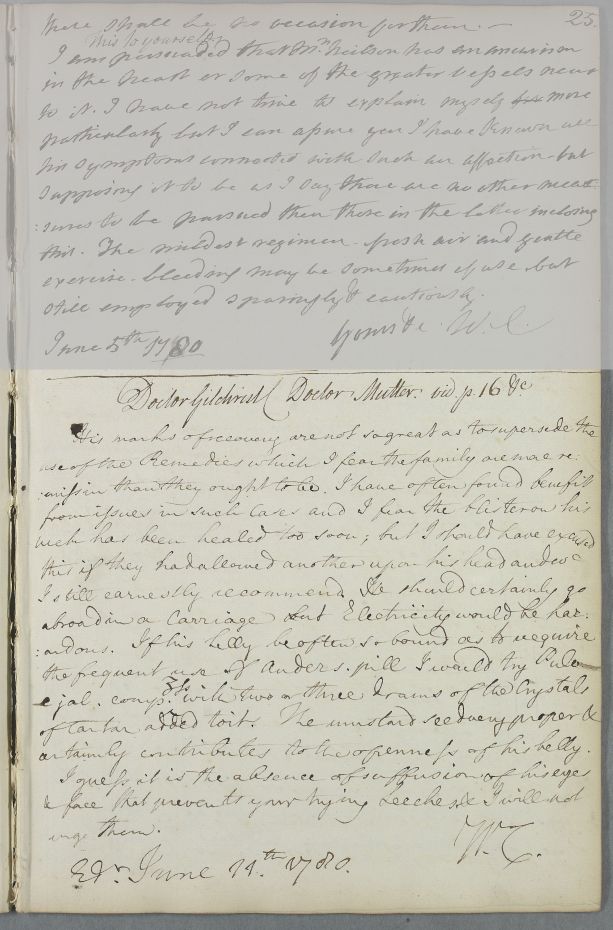 there shall be no occasion for them. —
23.
This to yourself
I am persuaded that Mr. Neilson has an aneurism
in the heart or some of the greater vessels near
to it. I have not time to explain myself more
particularly but I can assure you I have known all
his symptoms connected with such an affection but
supposing it to be as I say there are no other mea=
:sures to be pursued than those in the letter inclosing
this. The mildest regimen - fresh air and gentle
exercise. bleeding may be sometimes of use but
still employed sparingly & cautiously.
yours &c. W. C.
June 5th 1780
Doctor Gilchrist ( Doctor Mutter. vid. p. 16 &c
His marks of recovery are not so great as to supersede the
use of the Remedies which I fear the family are more re:
:miss in than they ought to be. I have often found benefit
from issues in such Cases and I fear the blister on his
neck has been healed too soon; but I should have excused
this if they had allowed another upon his head and
I still earnestly recommend. He should certainly go
abroad in a Carriage but Electricity would be haz:
:ardous. If his belly be often so bound as to require
the frequent use of Anders. pill I would try
e jal. comp. with two or three drams of the Crystals
of tartar added to it. The mustard seed very proper &
certainly contributes to the openness of his belly.
I guess it is the absence of suffusion of his eyes
& face that prevents your trying Leeches & I will not
urge them.
W. C.
Edr. June 11.th 1780.